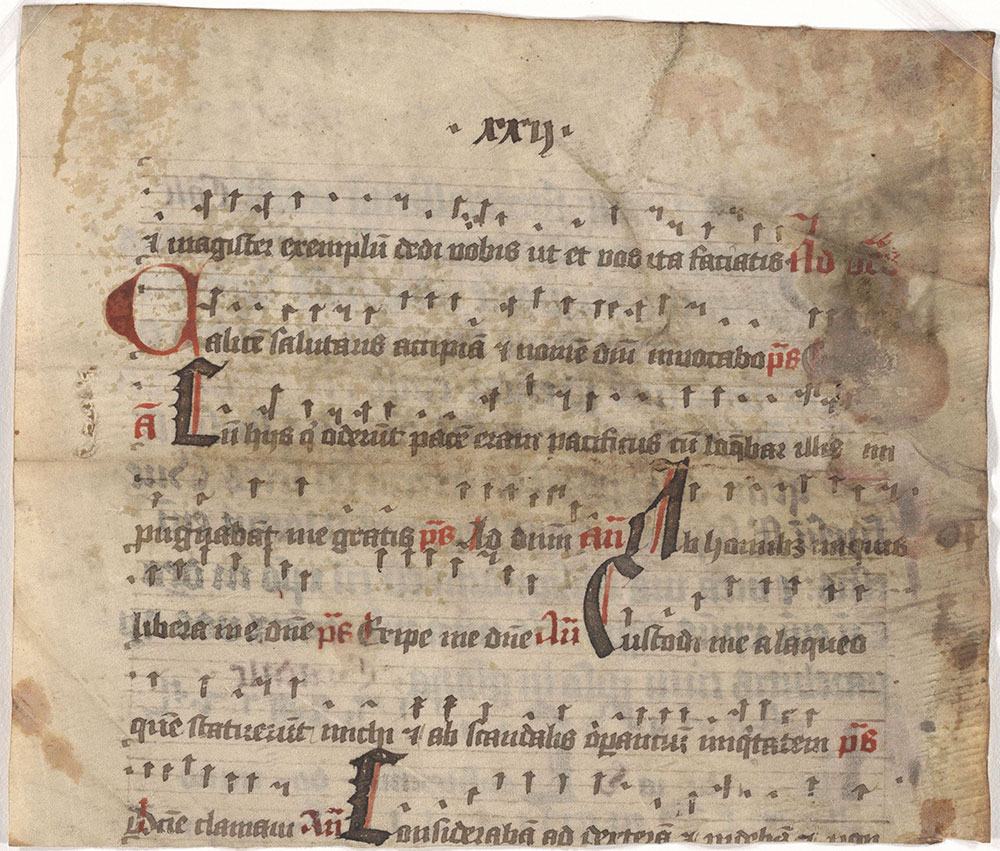 · xxij ·
⁊ magister exemplū dedi vobis ut et vos ita faciatis Ad
Calicē salutaris accipiā ⁊ nomē dn̄i invocabo p̄s
ā Cū hijs q̇ oderūt pacē eram pacificus cū loq̄bar illis im
pugnabāt me gratis p̄s Ad dn̄m an̄ Ab hominibȝ iniquis
libera me dn̄e p̄s Eripe me dn̄e An̄ Custodi me a laqueo
quē statuerūt michi ⁊ ab scandalis oꝑantiū iniq̇tatem p̄s
Dn̄e clamavi An̄ Considerabā ad dexterā ⁊ videbā ⁊ non